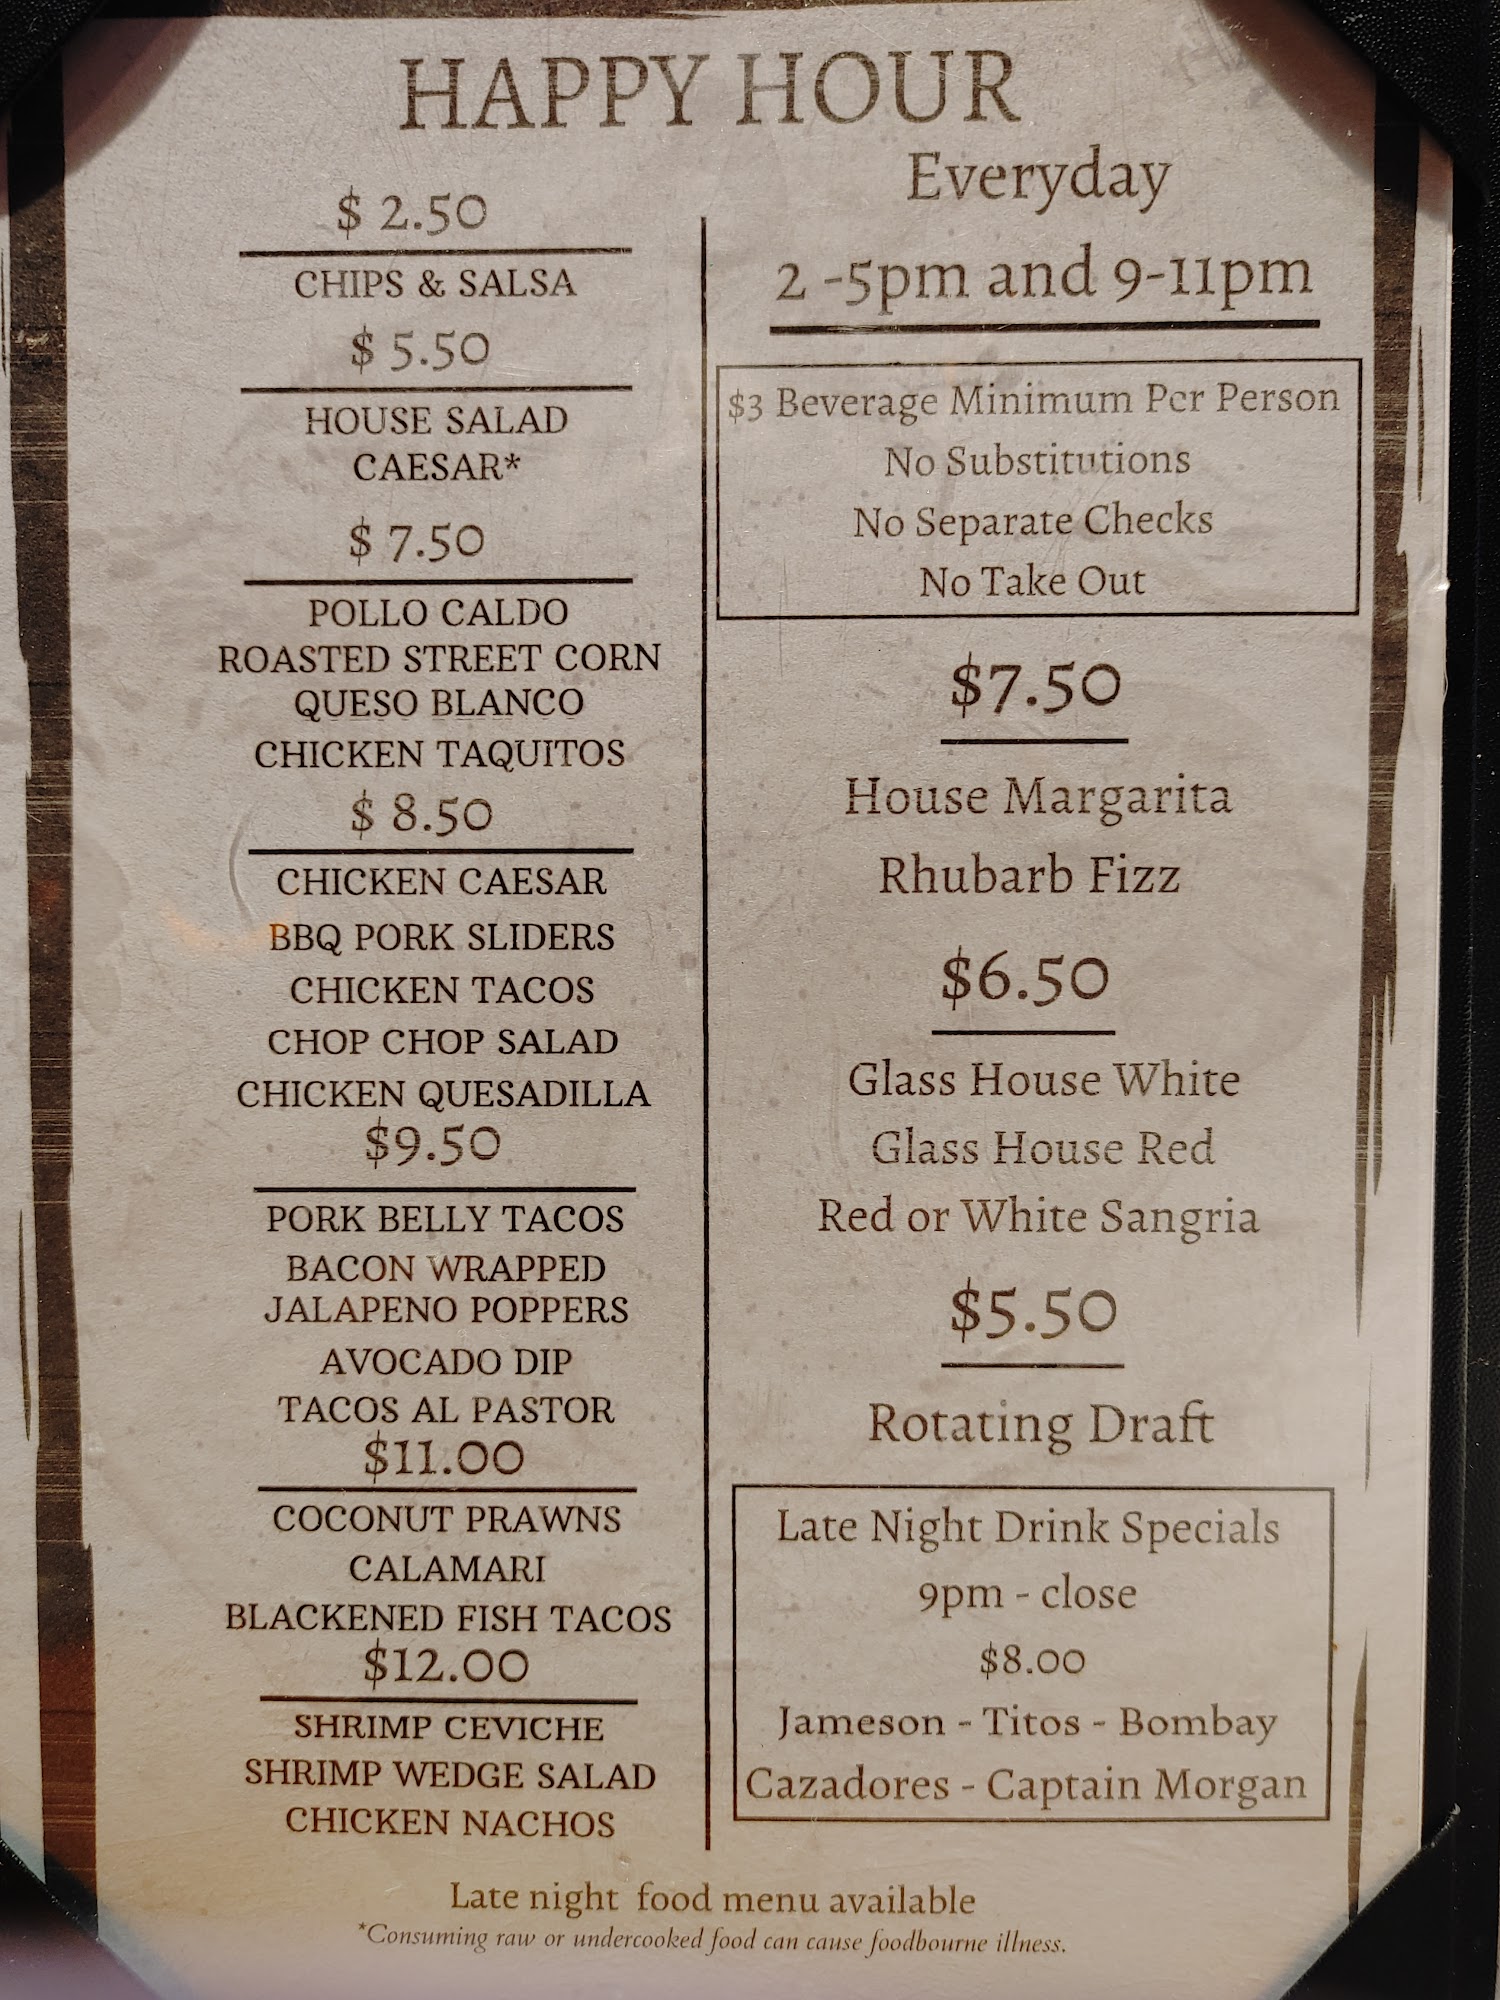 HAPPY HOUR
$ 2.50
CHIPS & SALSA
$ 5.50
HOUSE SALAD
CAESAR*
$ 7.50
POLLO CALDO
ROASTED STREET CORN
QUESO BLANCO
CHICKEN TAQUITOS
$ 8.50
CHICKEN CAESAR
BBQ PORK SLIDERS
CHICKEN TACOS
CHOP CHOP SALAD
CHICKEN QUESADILLA
$9.50
PORK BELLY TACOS
BACON WRAPPED
JALAPENO POPPERS
AVOCADO DIP
TACOS AL PASTOR
$11.00
COCONUT PRAWNS
CALAMARI
BLACKENED FISH TACOS
$12.00
SHRIMP CEVICHE
SHRIMP WEDGE SALAD
CHICKEN NACHOS
Everyday
2 -5pm and 9-11pm
$3 Beverage Minimum Per Person
No Substitutions
No Separate Checks
No Take Out
$7.50
House Margarita
Rhubarb Fizz
$6.50
Glass House White
Glass House Red
Red or White Sangria
$5.50
Rotating Draft
Late Night Drink Specials
9pm - close
$8.00
Jameson - Titos - Bombay
Cazadores - Captain Morgan
Late night food menu available
*Consuming raw or undercooked food can cause foodbourne illness.